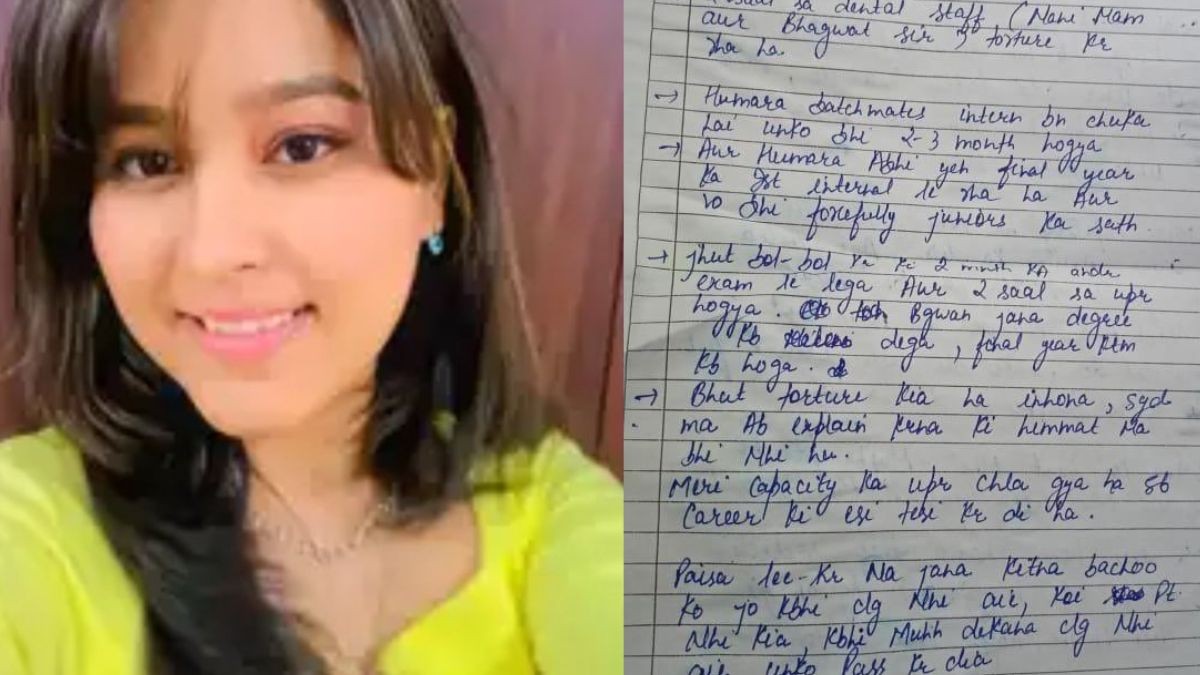 sa dental staff (Mam
aur Bhagwat sir) torture kr
rha ha.
→ Humara batchmates intern bn chuka
hai unko bhi 2-3 month hogya
→ Aur Humara Abhi yeh final year
Ka Ist internal le rha ha Aur
vo bhi forcefully juniors Ka sath.
→ jhut bol-bol Kr Ki 2 month KA andr
exam le lega Aur 2 saal sa upr
hogya. Bgwan jana degree
Kb dega, final year Ktm
Kb hoga.
→ Bhut torture Kia ha inhona, Syd
ma Ab explain krna Ki himmat Ma
bhi Nhi hu.
Meri Capacity Ka upr Chla gya ha sb
Career Ki esi tesi Kr di ha.
Paisa lee-Kr Na jana Ketna bachoo
Ko jo Kbhi clg Nhi aie, Koi Pt.
Nhi Kia, Kbhi Muhh dekana clg Nhi
aie unko Pass Kr dia